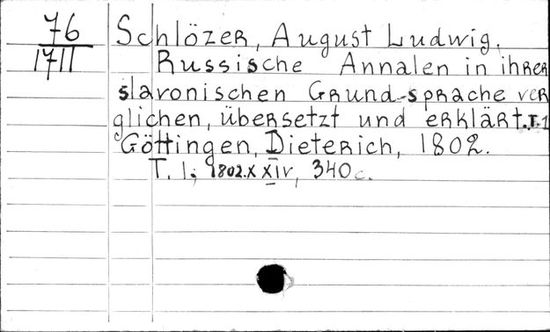 76
1711
Schlözer, August Ludwig.
Russische Annalen in ihrer
slavonischen Grund-sprache ver
glichen, übersetzt und erklärt. T.1
Göttingen, Dieterich, 1802.
T. 1; 1802. XXIV, 340 c.